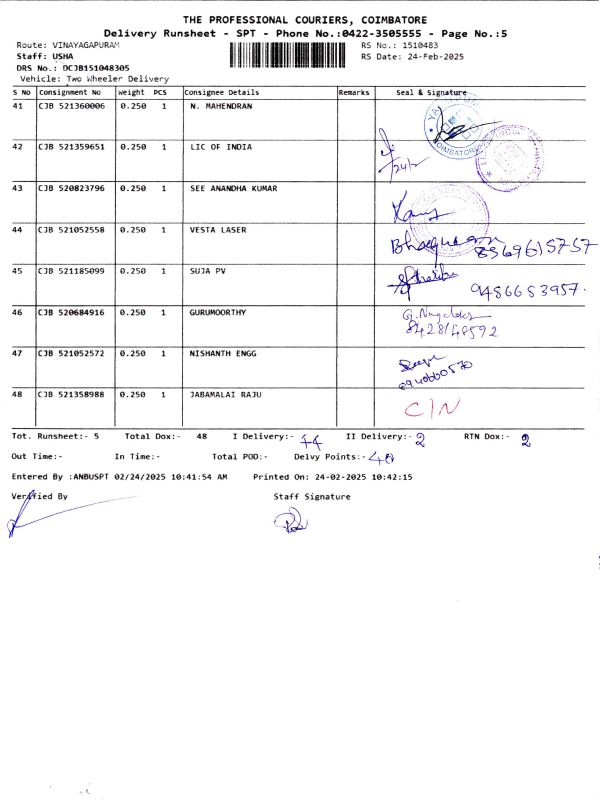 THE PROFESSIONAL COURIERS, COIMBATORE
Delivery Runsheet - SPT - Phone No.:0422-3505555 - Page No.:5
Route: VINAYAGAPURAM
RS No.: 1510483
Staff: USHA
RS Date: 24-Feb-2025
DRS No.: DCJB151048305
Vehicle: Two Wheeler Delivery
S No Consignment No Weight PCS Consignee Details Remarks Seal & Signature
41 CJB 521360006 0.250 1 N. MAHENDRAN
42 CJB 521359651 0.250 1 LIC OF INDIA
43 CJB 520823796 0.250 1 SEE ANANDHA KUMAR
44 CJB 521052558 0.250 1 VESTA LASER
45 CJB 521185099 0.250 1 SUJA PV 9486683957.
46 CJB 520684916 0.250 1 GURUMOORTHY
8428148592
47 CJB 521052572 0.250 1 NISHANTH ENGG
48 CJB 521358988 0.250 1 JABAMALAI RAJU C/N
Tot. Runsheet:- 5 Total Dox:- 48 I Delivery:- 44 II Delivery:- 2 RTN Dox:- 2
Out Time:- In Time:- Total POD:- Delvy Points:- 40
Entered By :ANBUSPT 02/24/2025 10:41:54 AM Printed On: 24-02-2025 10:42:15
Verified By Staff Signature